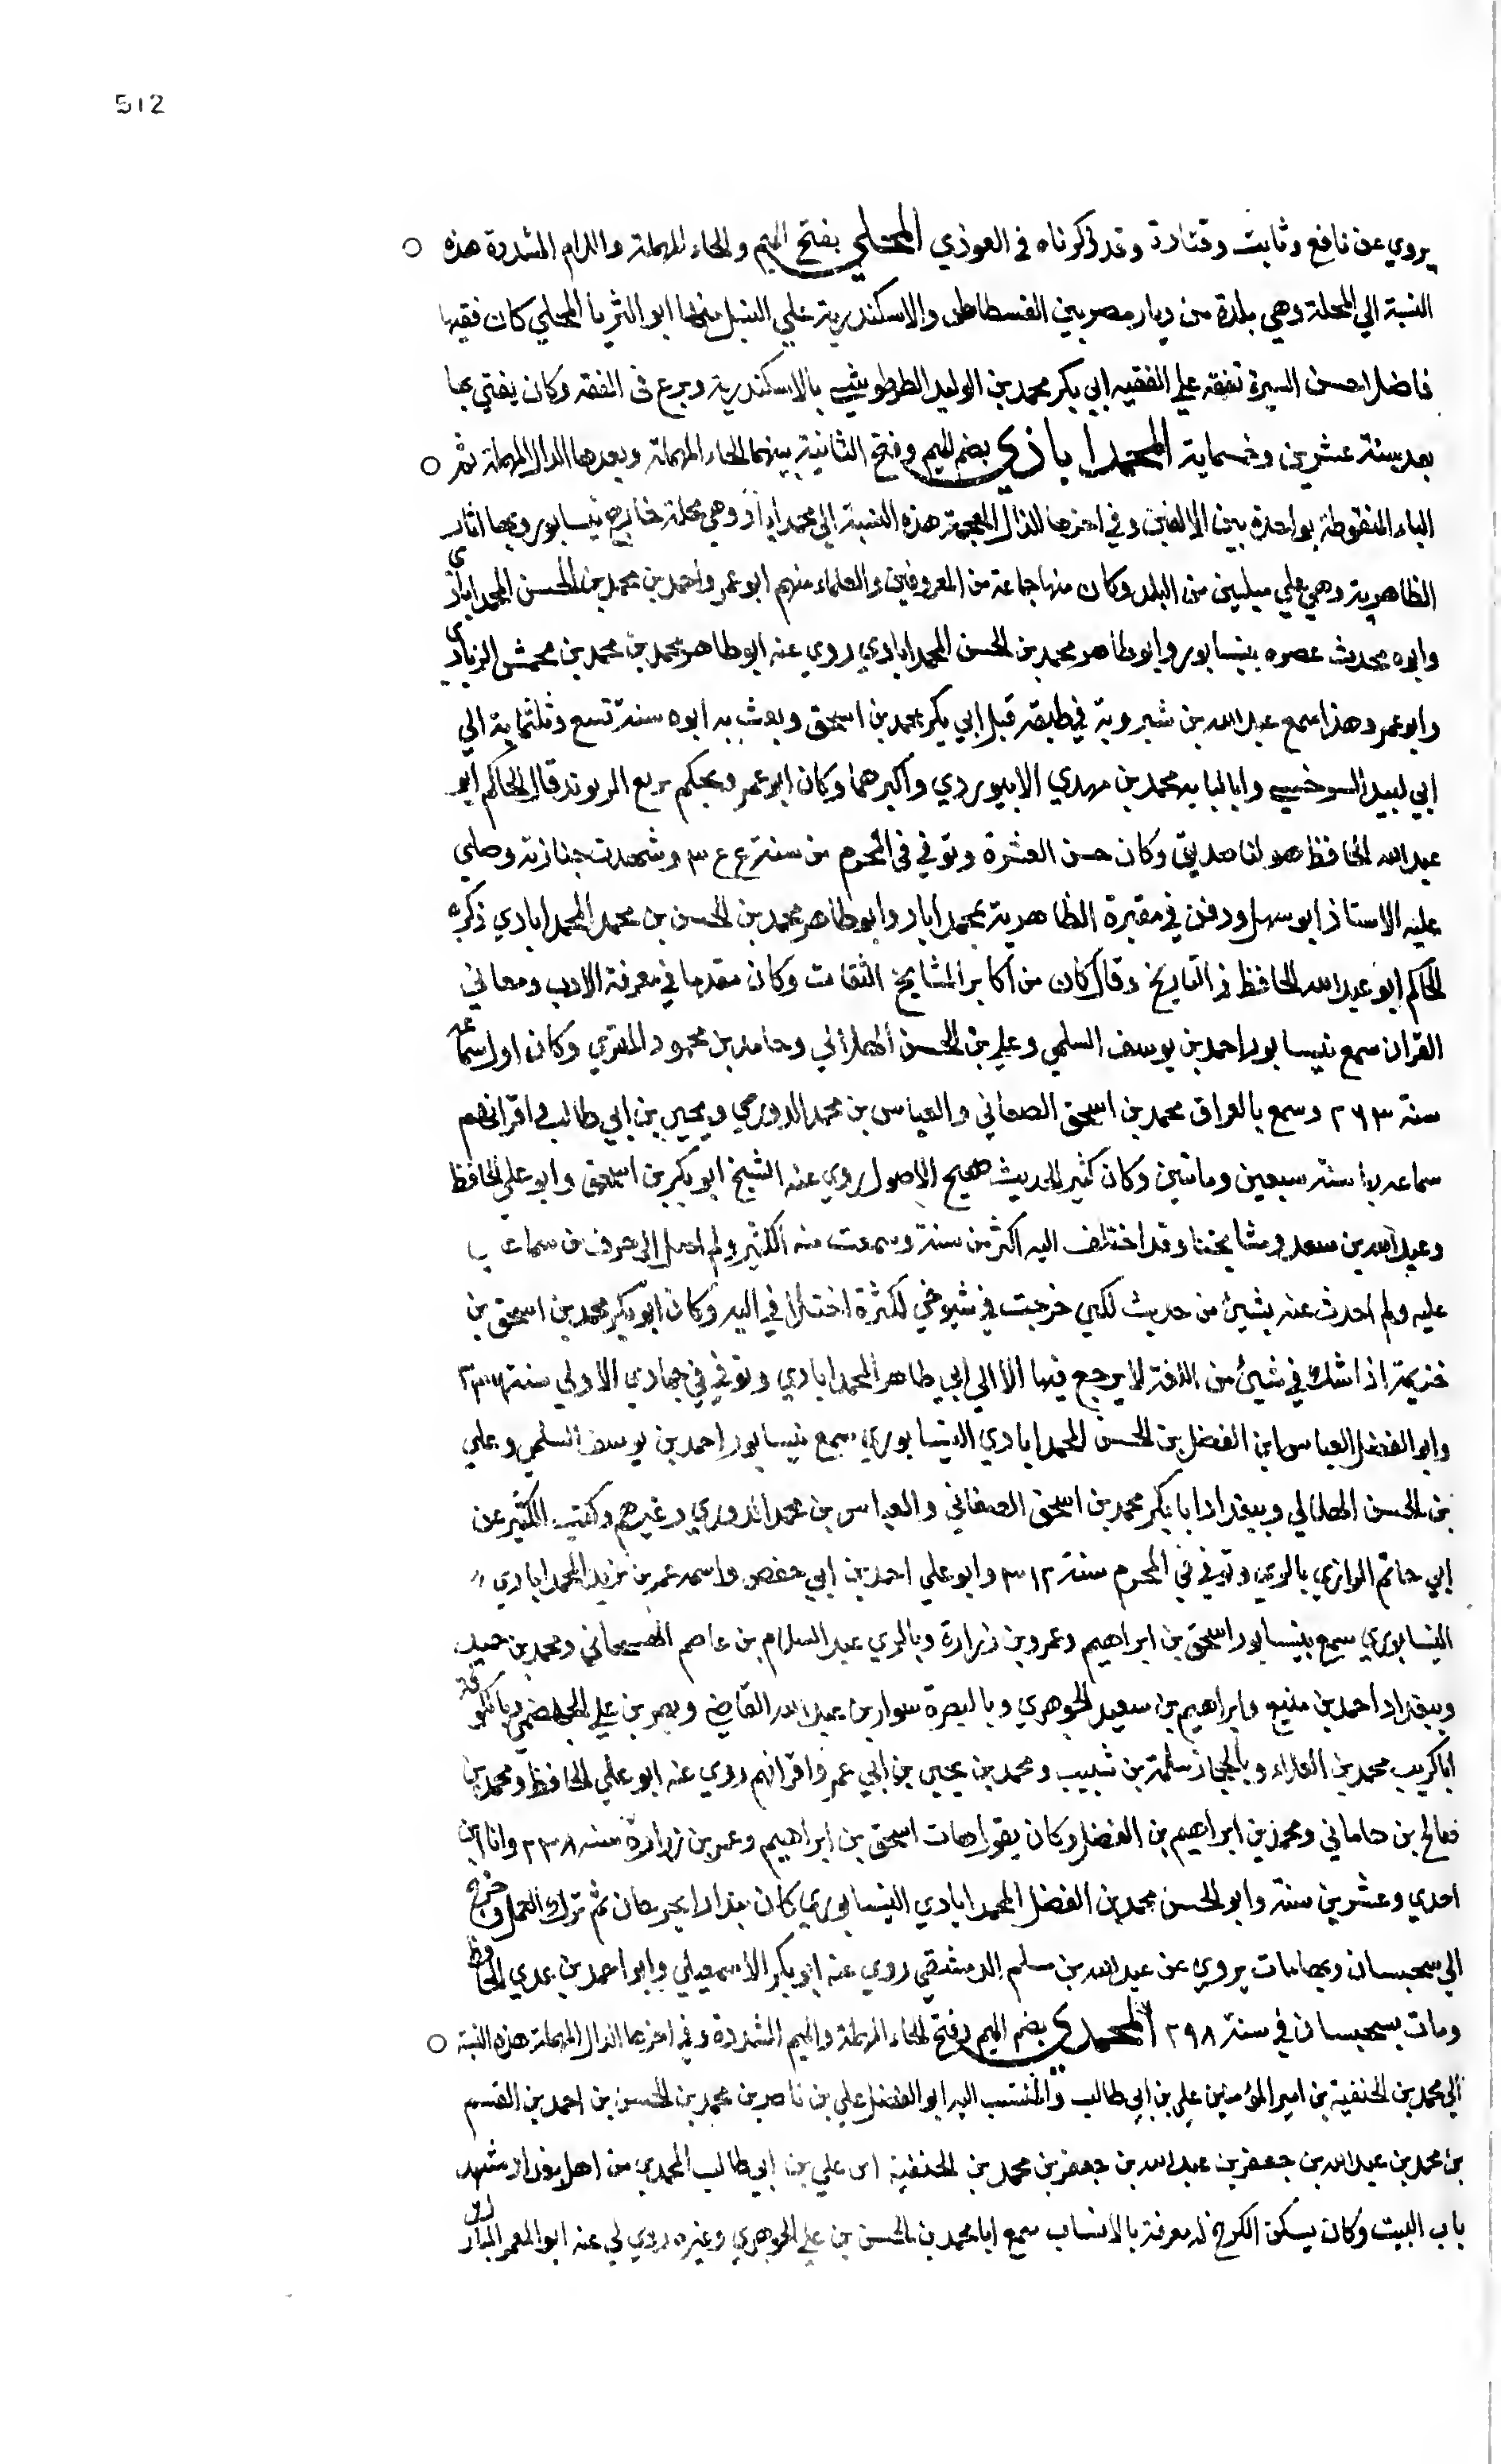 512
يروي عن نافع وثابت وقتادة وقد ذكرناه في العوذي المحلي بفتح الميم والحاء المهملة واللام المشددة هذه
النسبة الي المحلة وهي بلدة من ديار مصر بين الفسطاط والاسكندرية علي النيل منها ابو الثريا المحلي كان فقيها
فاضلا حسن السيرة تفقه علي الفقيه ابي بكر محمد بن الوليد الطرطوشي بالاسكندرية وبرع في الفقه وكان يفتي بها
بعد سنة عشرين وخمسماية المحمداباذي بضم الميم وفتح الثانية بينهما الحاء المهملة وبعدها الدال المهملة ثم
الباء المنقوطة بواحدة بين الالفين وفي اخرها الذال المعجمة هذه النسبة الي محمداباذ وهي محلة خارج نيسابور وبها اثار
الظاهرية وهي علي ميلين من البلد وكان منها جماعة من المعروفين والعلماء منهم ابو عمرو احمد بن محمد بن الحسن المحمداباذي
وابوه محدث عصره بنيسابور وابو طاهر محمد بن الحسن المحمدابادي روي عنه ابو طاهر محمد بن محمد بن محمش الزيادي
وابو عمرو هذا سمع عبد الله بن شيروية في طبقة قبل ابي بكر محمد بن اسحق وبعث به ابوه سنة تسع وثلثماية الي
ابي لبيد السرخسي وابا لبابه محمد بن مهدي الابيوردي واكبرهما وكان ابو عمرو يحكم بربع الريوند قال الحاكم ابو
عبد الله الحافظ هو لنا صديق وكان حسن العشرة وتوفي في المحرم من سنة ٣٤٤ وشهدت جنازته وصلي
عليه الاستاذ ابو سهل ودفن في مقبرة الظاهرية بمحمداباد وابو طاهر محمد بن الحسن بن محمد المحمدابادي ذكره
الحاكم ابو عبد الله الحافظ في التاريخ وقال كان من اكابر المشايخ الثقات وكان مقدما في معرفة الادب ومعاني
القران سمع نيسابور احمد بن يوسف السلمي وعلي بن الحسن الهلالي وحامد بن محمود المقري وكان اول سماعه
سنة ٢٦٣ وسمع بالعراق محمد بن اسحق الصغاني والعباس بن محمد الدوري ويحيي بن ابي طالب واقرانهم
سماعه بها سنة سبعين وماتين وكان كثير الحديث صحيح الاصول روي عنه الشيخ ابو بكر بن اسحق وابو علي الحافظ
وعبد الله بن سعد ومشايخنا وقد اختلف اليه اكثر من سنة وسمعت منه الكثير ولم اصل الي حرف من سماعي
عليه ولم احدث عنه بشيئ من حديث لكني خرجت في شيوخي لكثرة اختلافي اليه وكان ابو بكر محمد بن اسحق بن
خزيمة اذا شك في شيئ من اللغة لا يرجع فيها الا الي ابي طاهر المحمدابادي وتوفي في جمادي الاولي سنة ٣٣٦
وابو الفضل العباس ابن الفضل بن الحسن المحمدابادي النيسابوري سمع نيسابور احمد بن يوسف السلمي وعلي
بن الحسن الهلالي وببغداد ابا بكر محمد بن اسحق الصغاني والعباس بن محمد الدوري وغيرهم وكتب الكثير عن
ابي حاتم الرازي بالري وتوفي في المحرم سنة ٣١٢ وابو علي احمد بن ابي حفص واسمه عمر بن يزيد المحمدابادي
النيسابوري سمع بنيسابور اسحق بن ابراهيم وعمرو بن زرارة وبالري عبد السلام بن عاصم الهسنجاني ومحمد بن حميد
وببغداد احمد بن منيع وابراهيم بن سعيد الجوهري وبالبصرة سوار بن عبد الله القاضي ونصر بن علي الجهضمي وبالكوفة
ابا كريب محمد بن العلاء وبالحجاز سلمة بن شبيب ومحمد بن يحيي بن ابي عمر واقرانهم روي عنه ابو علي الحافظ ومحمد بن
صالح بن هاماني ومحمد بن ابراهيم بن الفضل وكان يقول مات اسحق بن ابراهيم وعمر بن زرارة سنة ٢٣٨ وانا ابن
احدي وعشرين سنة وابو الحسن محمد بن الفضل المحمدابادي النيسابوري كان بندارا بجرجان ثم ترك العمل وخرج
الي سجسسان وبها مات يروي عن عبد الله بن مسلم الدمشقي روي عنه ابو بكر الاسمعيلي وابو احمد بن عدي الحافظ
ومات بسجسسان في سنة ٢٩٨ المحمدي بضم الميم وفتح الحاء المهملة والميم المشددة وفي اخرها الدال المهملة هذه النسبة
الي محمد بن الحنفية بن امير المؤمنين علي بن ابي طالب والمنتسب اليه ابو الفضل علي بن ناصر بن محمد بن الحسن بن احمد بن القسم
بن محمد بن عبد الله بن جعفر بن عبد الله بن جعفر بن محمد بن الحنفية ابن علي بن ابي طالب المحمدي من اهل مشهد
باب البيت وكان يسكن الكرخ له معرفة بالانساب سمع ابا محمد بن الحسن بن علي الجوهري وغيره روي لي عنه ابو المعمر